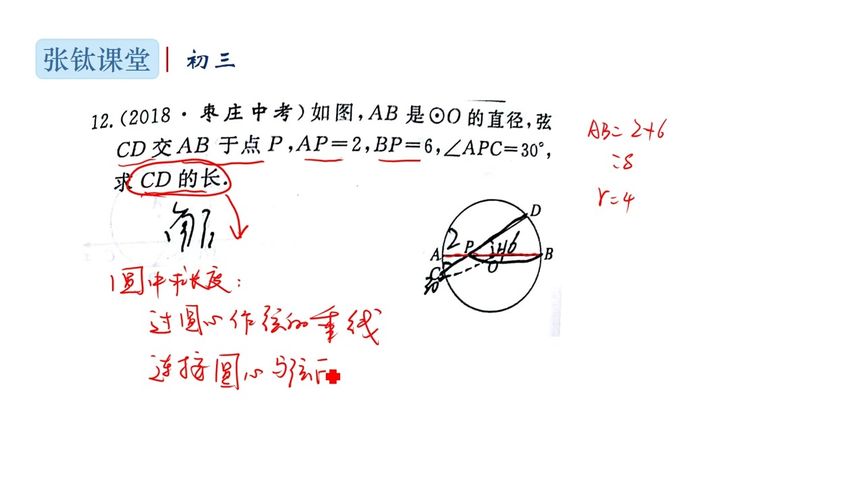 张钛课堂 | 初三
12.(2018·枣庄中考)如图,AB 是⊙O 的直径,弦
CD 交 AB 于点 P,AP=2,BP=6,∠APC=30°,
求 CD 的长.
AB=2+6
=8
r=4
解
D
2
H
6
A
P
O
B
C
圆中求长度:
过圆心作弦的垂线
连接圆心与弦